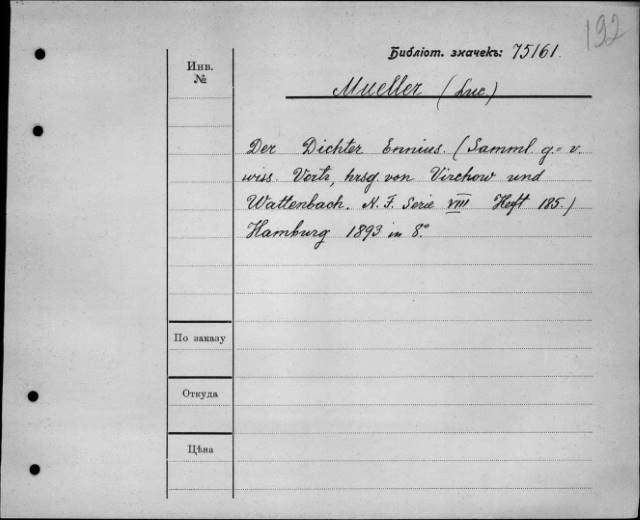 192
Библіот. значекъ: 75161.
Инв. №
Mueller (Luc.)
Der Dichter Ennius. (Samml. g.=v.
wiss. Vortr., hrsg. von Virchow und
Wattenbach. N. F. Serie VIII Heft 185.)
Hamburg 1893 in 8.°
По заказу
Откуда
Цѣна